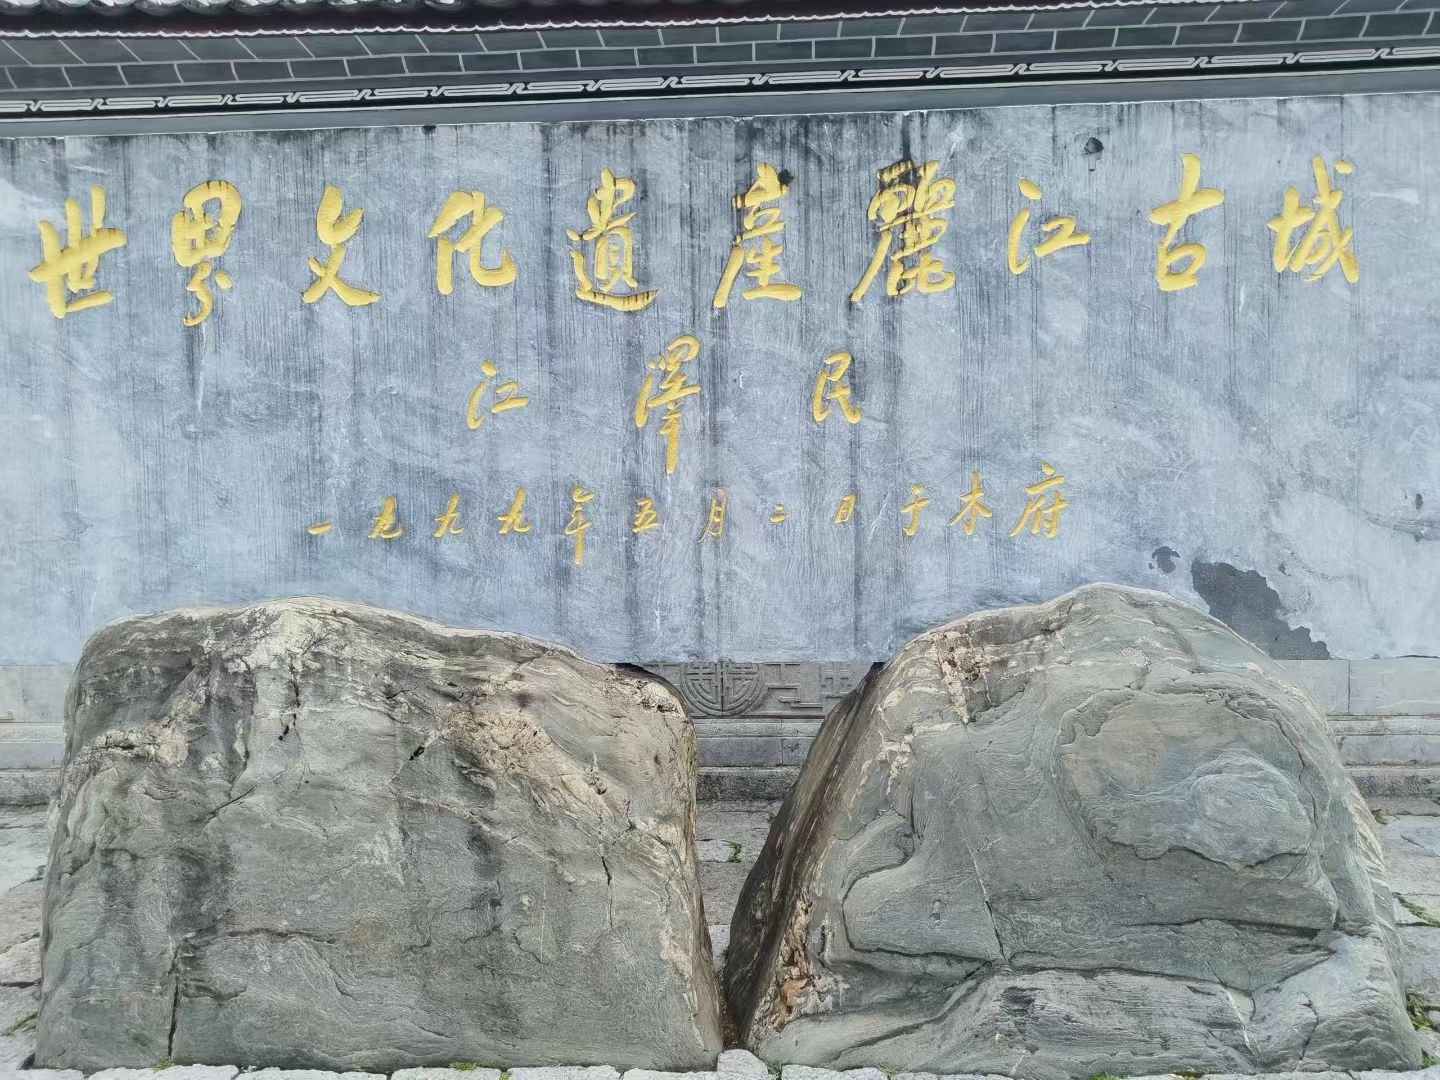 世界文化遺產麗江古城
江澤民
一九九九年五月二日于木府